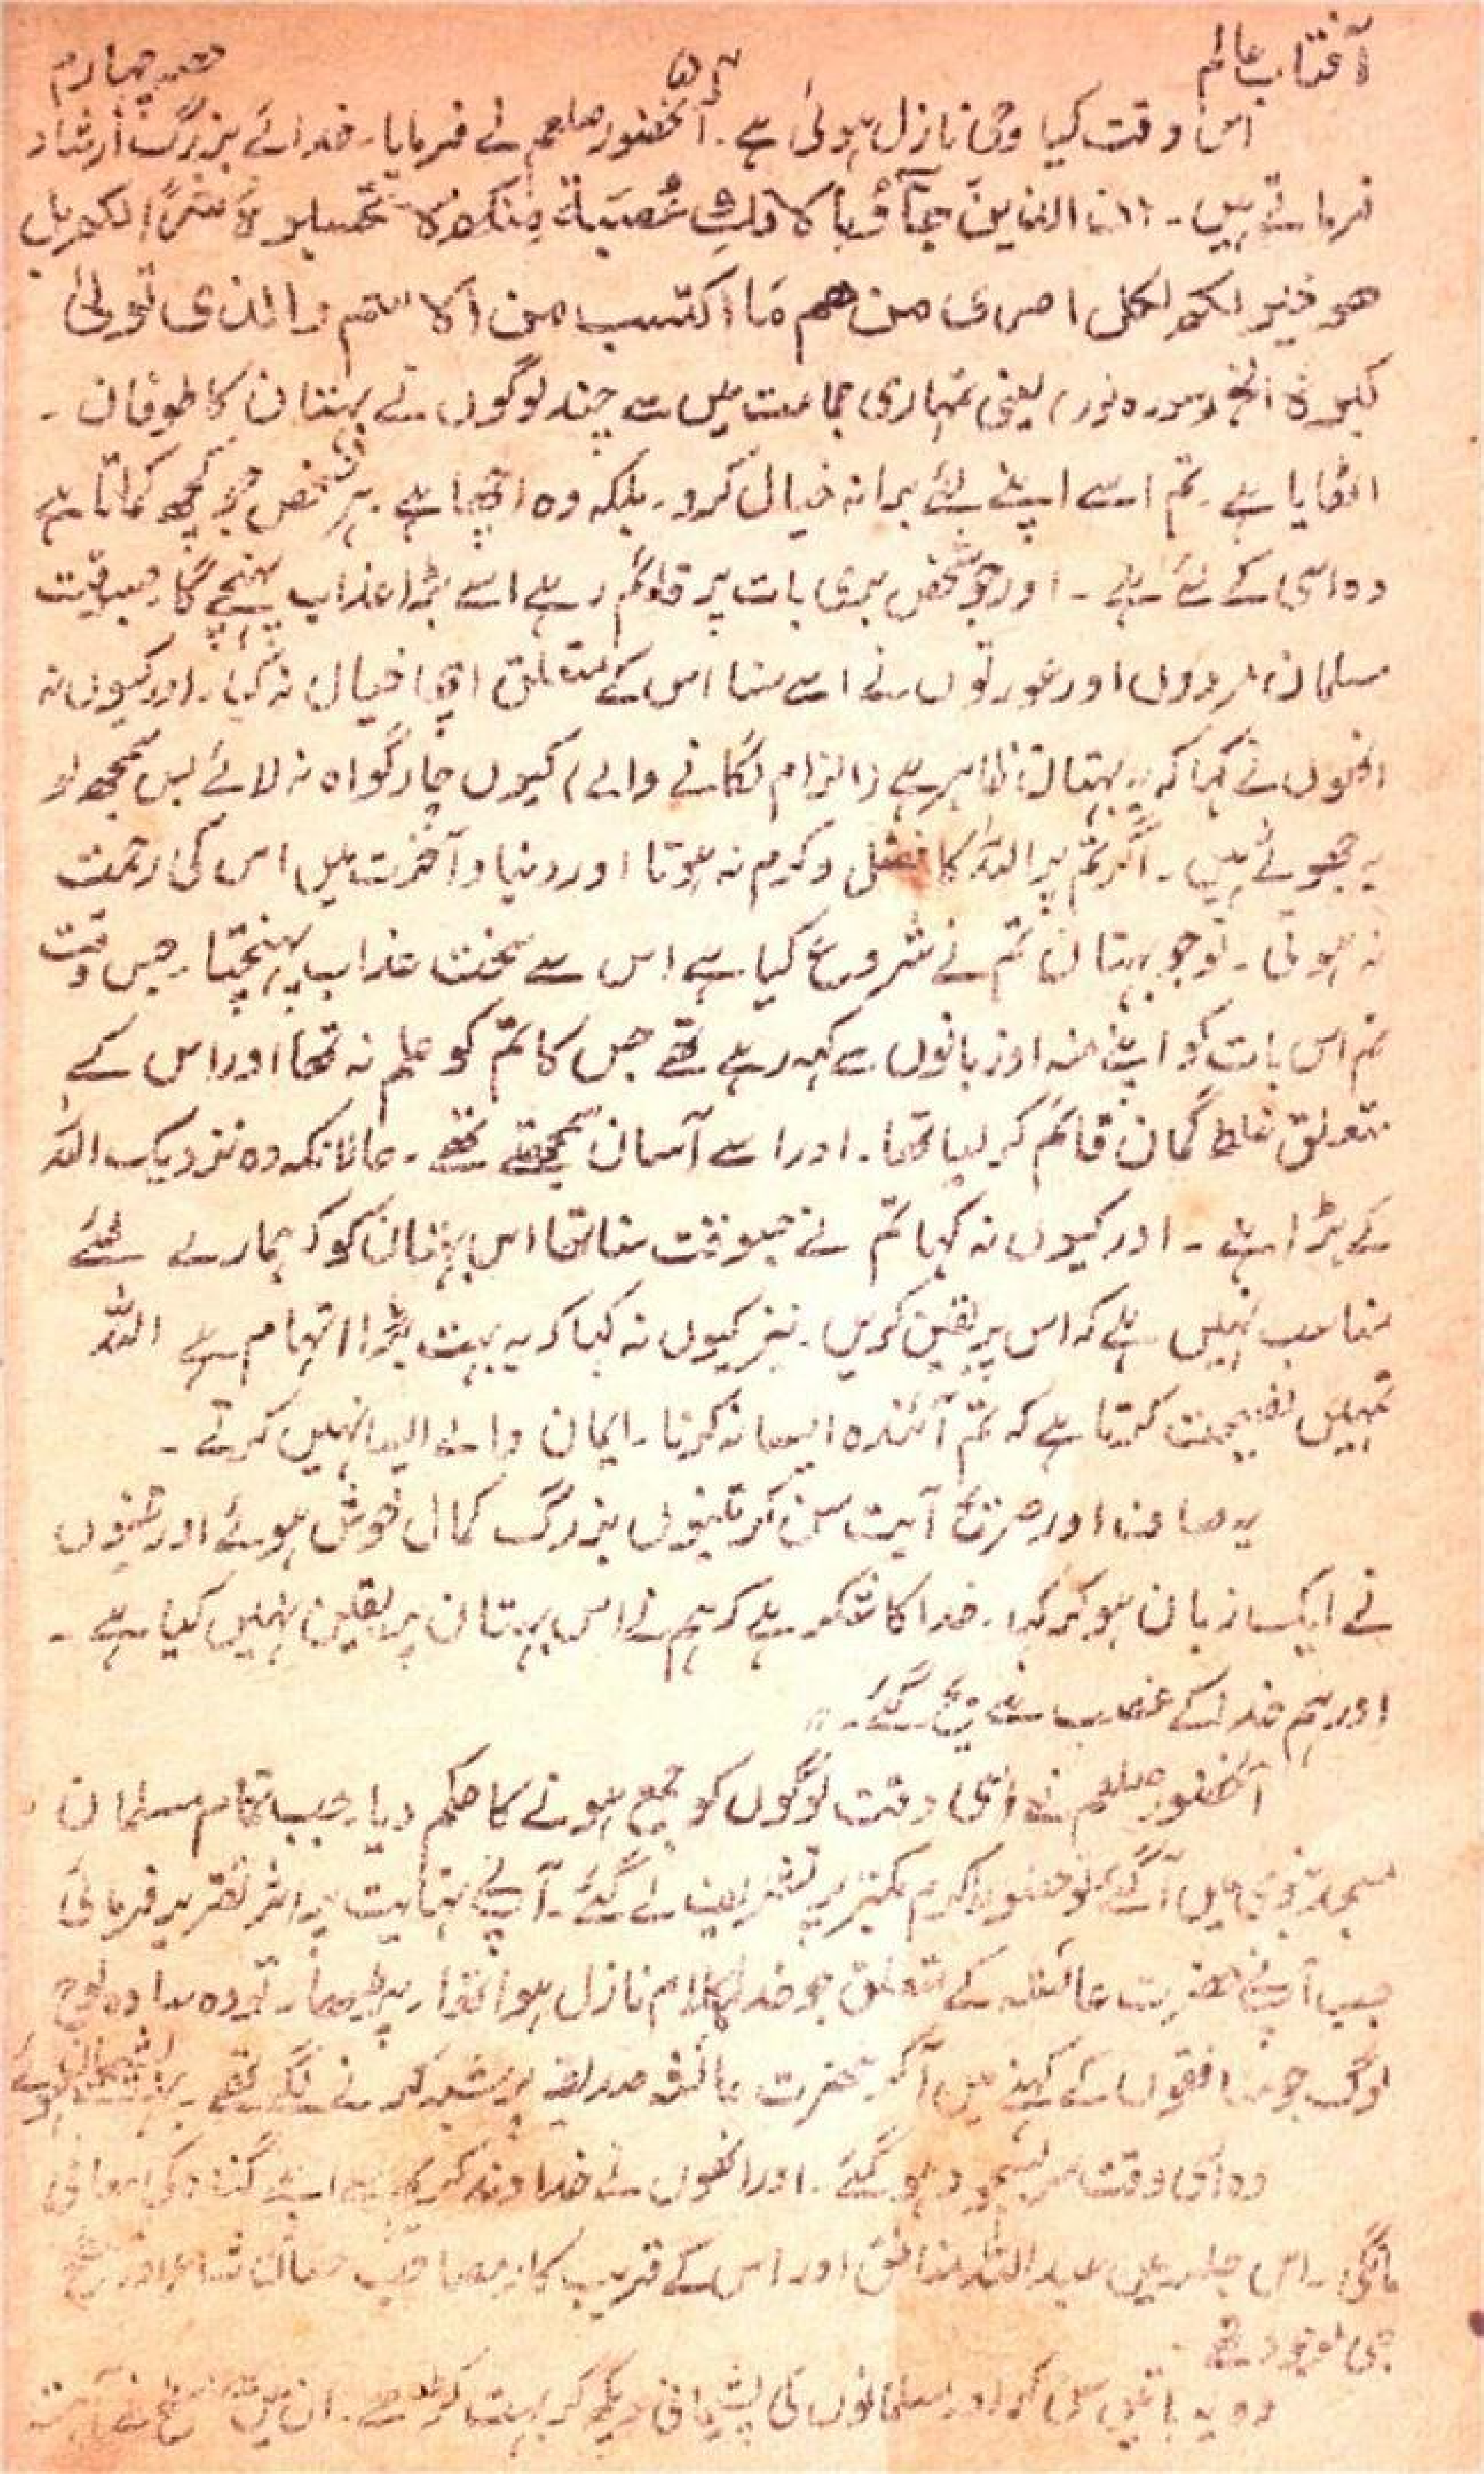 آفتاب عالم
۵۴
حصہ چہارم
اس وقت کیا وحی نازل ہوئی ہے۔ آنحضور صلعم نے فرمایا۔ خدائے بزرگ ارشاد
فرماتے ہیں۔ ان الذین جَآؤُ بالافکِ عُصبَۃ مِنکم لا تحسبوہُ شرًا لکم بل
ھو خیر لکم لکل امری منھم مَا اکتسب من الاثم والذی تولیٰ
کبرہٗ الخ (سورہ نور) یعنی تمہاری جماعت میں سے چند لوگوں نے بہتان کا طوفان۔
اٹھایا ہے۔ تم اسے اپنے لئے برا نہ خیال کرو۔ بلکہ وہ اچھا ہے۔ ہر شخص جو کچھ کماتا ہے
وہ اسی کے لئے ہے۔ اور جو شخص بری بات پر قائم رہے اسے بڑا عذاب پہنچے گا۔ جسوقت
مسلمان مردوں اور عورتوں نے اسے سنا اس کے متعلق اچھا خیال نہ کیا۔ اور کیوں نہ
انھوں نے کہا کہ یہ بہتان ظاہر ہے (الزام لگانے والے) کیوں چار گواہ نہ لائے بس سمجھ لو
یہ جھوٹے ہیں۔ اگر تم پر اللہ کا فضل و کرم نہ ہوتا اور دنیا و آخرت میں اس کی رحمت
نہ ہوتی۔ تو جو بہتان تم نے شروع کیا ہے اس سے سخت عذاب پہنچتا۔ جس وقت
تم اس بات کو اپنے منہ اور زبانوں سے کہہ رہے تھے جس کا تم کو علم نہ تھا اور اس کے
متعلق غلط گمان قائم کر لیا تھا۔ اور اسے آسان سمجھتے تھے۔ حالانکہ وہ نزدیک اللہ
کے بڑا ہے۔ اور کیوں نہ کہا تم نے جسوقت سنا تھا اس بہتان کو کہ ہمارے لئے
مناسب نہیں ہے کہ اس پر یقین کریں۔ نیز کیوں نہ کہا کہ یہ بہت بڑا اتہام ہے اللہ
تمہیں نصیحت کرتا ہے کہ تم آئندہ ایسا نہ کرنا۔ ایمان والے ایسا نہیں کرتے۔
یہ صاف اور صریح آیت سن کر تینوں بزرگ کمال خوش ہوئے اور تینوں
نے ایک زبان ہو کر کہا۔ خدا کا شکر ہے کہ ہم نے اس بہتان پر یقین نہیں کیا ہے۔
اور ہم خدا کے غضب سے بچ گئے۔"
آنحضور صلعم نے اسی وقت لوگوں کو جمع ہونے کا حکم دیا۔ جب تمام مسلمان
مسجد نبوی میں آ گئے تو حضور اکرم ممبر پر تشریف لے گئے۔ آپ نے نہایت پر اثر تقریر فرمائی
جب آپ نے حضرت عائشہ کے متعلق جو خدا کا کلام نازل ہوا تھا۔ پڑھا۔ تو وہ سادہ لوح
لوگ جو منافقوں کے کہنے میں آ کر حضرت عائشہ صدیقہ پر شبہ کرنے لگے تھے۔
وہ اسی وقت سر بسجود ہو گئے۔ اور انھوں نے خداوند کریم سے اپنے گناہ کی معافی
مانگی۔ اس جلسہ میں عبداللہ منافق اور اس کے قریب کا مصاحب حسان شاعر اور مسطح
بھی موجود تھے۔
وہ یہ باتیں سن کر اور مسلمانوں کی پشیمانی دیکھ کر بہت کڑھے۔ ان میں سے مسطح نے